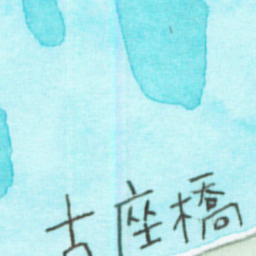 古座橋